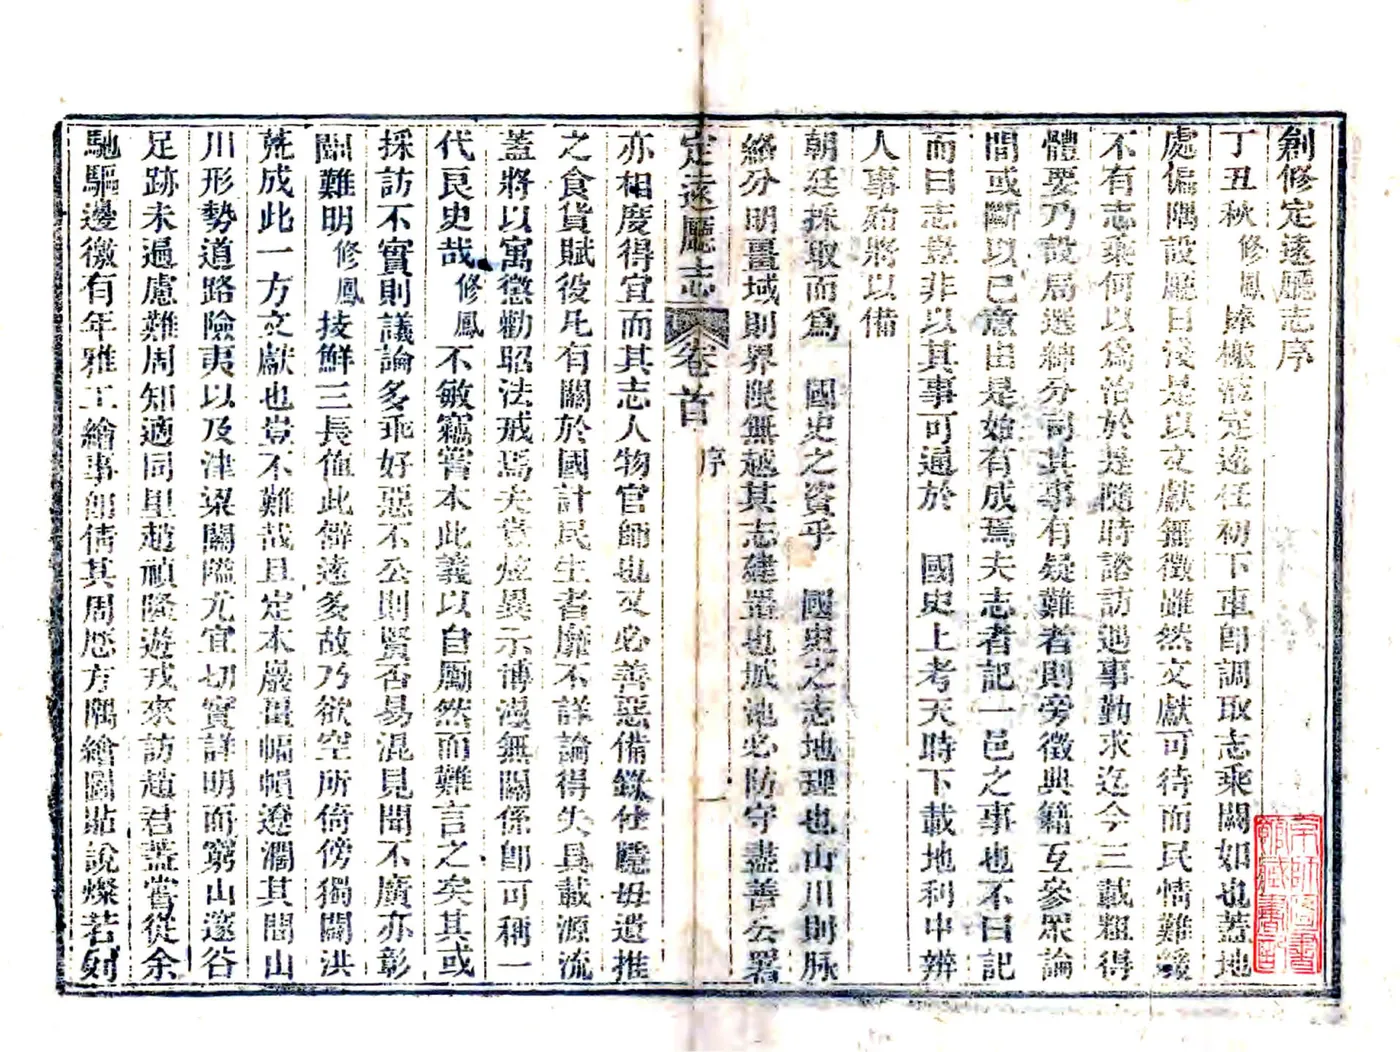 創修定遠廳志序
丁丑秋修鳳捧檄蒞定遠任初下車卽調取志乘闕如也蓋地
處偏隅設廳日淺是以文獻無徵雖然文獻可待而民情難緩
不有志乘何以爲治於是隨時諮訪遇事勤求迄今三載粗得
體要乃設局選紳分司其事有疑難者則旁徵典籍互參眾論
間或斷以己意由是始有成焉夫志者記一邑之事也不曰記
而曰志豈非以其事可通於 國史上考天時下載地利中辨
人事始將以備
朝廷採取而爲 國史之資乎 國史之志地理也山川則脉
絡分明畺域則界限無越其志建置也城池必防守盡善公署
定遠廳志 卷首 序 一
亦相度得宜而其志人物官師也又必善惡備錄仕隱毋遺推
之食貨賦役凡有關於國計民生者靡不詳論得失具載源流
蓋將以寓懲勸昭法戒焉夫豈炫異示博漫無關係卽可稱一
代良史哉修鳳不敏竊嘗本此義以自勵然而難言之矣其或
採訪不實則議論多乖好惡不公則賢否易混見聞不廣亦彰
闡難明修鳳技鮮三長値此僻遠多故乃欲空所倚傍獨闢洪
荒成此一方文獻也豈不難哉且定本巖邑幅幀遼濶其間山
川形勢道路險夷以及津梁關隘尤宜切實詳明而窮山邃谷
足跡未遍慮難周知適同里趙禎隆遊戎來訪趙君蓋嘗從余
馳驅邊徼有年雅工繪事卽倩其周歷方隅繪圖貼說燦若列